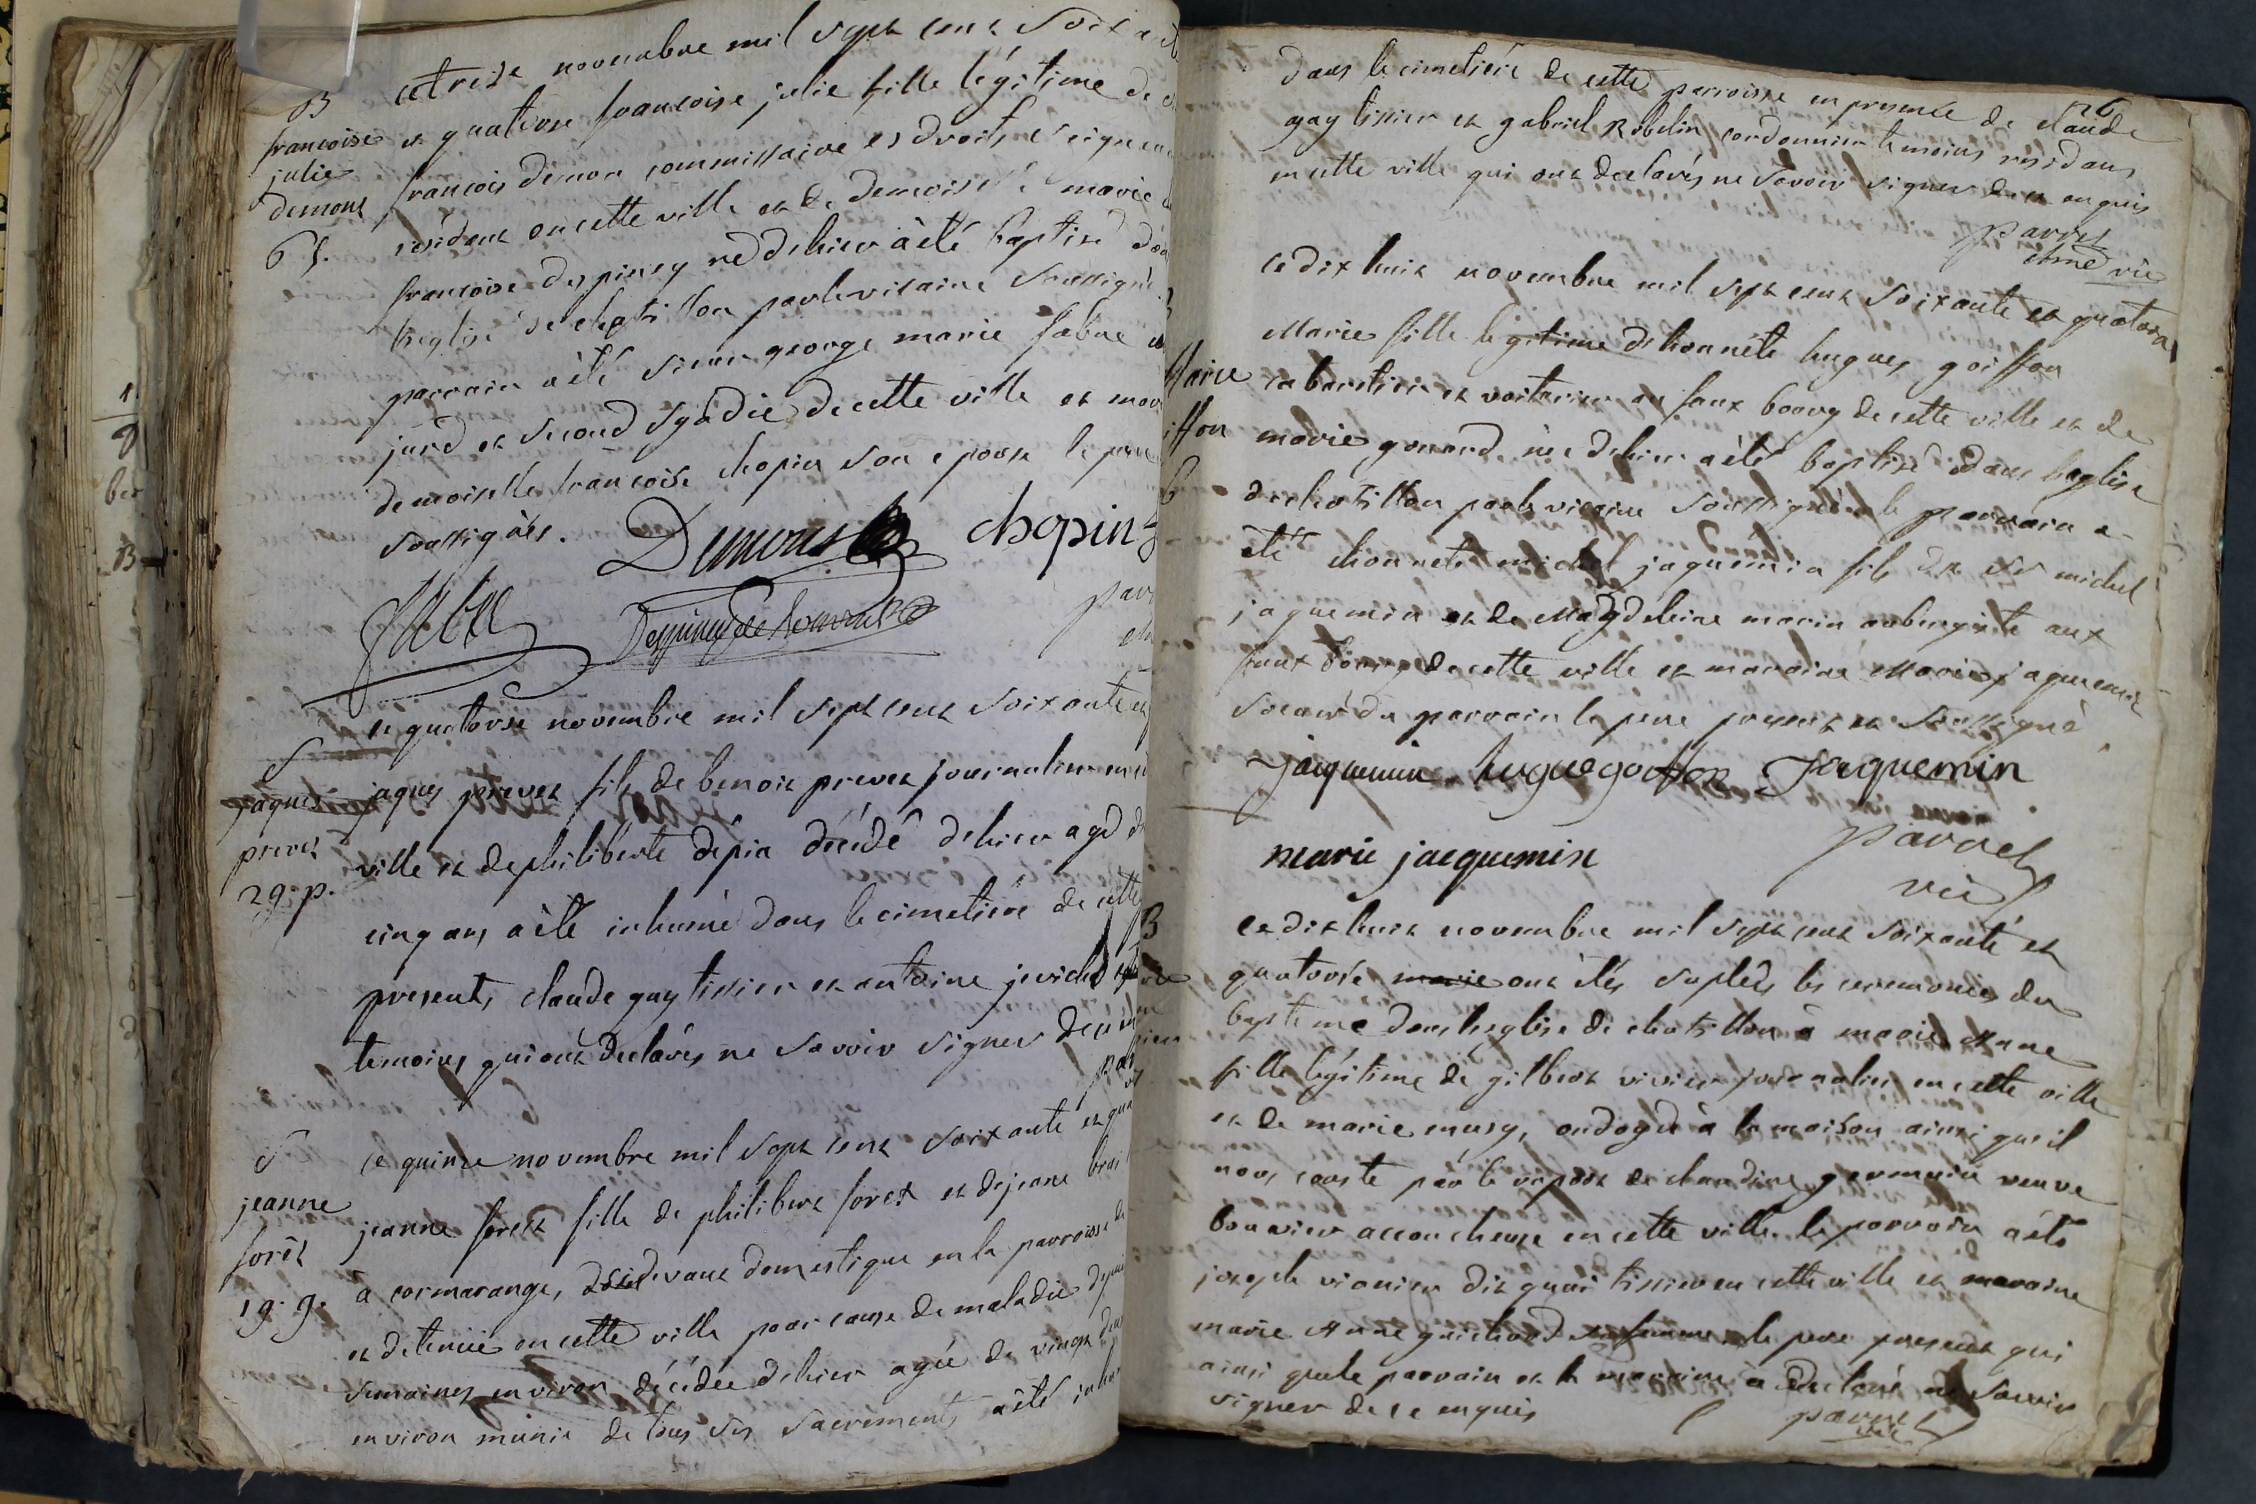 B
françoise
julie
demons
65.
ce treize novembre mil sept cent soixante
et quatorse francoise julie fille légitime de
francois demon commissaire es droits seigneu
résident en cette ville et de demoiselle marie
francoise despiney né dehier à été baptisé dan
l'eglise de chatillon par le vicaire soussigné
parrain à été sieur george marie fabre
juré et second syndic de cette ville et mar
demoiselle francoise chopin son epouse le pere
soussignés. Demons chopin
fabre
par
S
jaques
prevet
29. p.
ce quatorse novembre mil sept cent soixante et
jaques prevet fils de benoit prevet journalier en
ville et de philiberte dépin décédé dehier agé de
cinq ans à été inhumé dans le cimetière de cette
presents claude gay tissier et antoine
temoins qui ont declarés ne savoir signer de ce en
par
S
jeanne
forêt
19. g.
ce quinze novembre mil sept cent soixante et qua
jeanne foret fille de philibert foret et de jeane
à cormarange, devant domestique en la parroisse de
et detenüe en cette ville pour cause de maladie depuis
semaines environ décédée dehier agée de vingt deux
environ munie de tous ses sacrements à été inhu
26
dans le cimetière de cette parroisse en presence de claude
gay tissier et gabriel Robelin cordonnier temoins résidans
en cette ville qui ont declarés ne savoir signer de ce enquis
parret
vic
Marie
iffon
6
ce dix huit novembre mil sept cent soixante et quatorse
Marie fille legitime de honnête hugues goiffon
cabaretier et voiturier au faux bourg de cette ville et de
marie gonard née dehier à été baptisé dans l'eglise
de chatillon par le vicaire soussigné le parrain a
été honnete michel jaquemin fils de sr michel
jaquemin et de Magdeleine marin aubergiste aux
faux bourg de cette ville et maraine Marie jaquemin
soeur du parrain le pere present et soussigné
jacquemin hugue goiffon Jaquemin
marie jacquemin parret
vic
B
ce dix huit novembre mil sept cent soixante et
quatorse marie ont étés suplées les ceremonies du
baptême dans l'eglise de chatillon à marie Anne
fille légitime de gilbert vivier journalier en cette ville
et de marie musy, ondoyée à la maison ainsi qu'il
nous conste par le raport de claudine germain veuve
bouvier accoucheuse en cette ville. le parrain a été
joseph vionier dit quai tissier en cette ville et maraine
marie Anne guichard sa femme le pere present qui
ainsi que le parrain et la maraine a declaré ne savoir
signer de ce enquis parret
vic